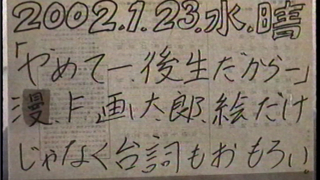 2002.1.23.水.晴
「やめてー、後生だからー」
漫☆F画太郎、絵だけ
じゃなく台詞もおもろい